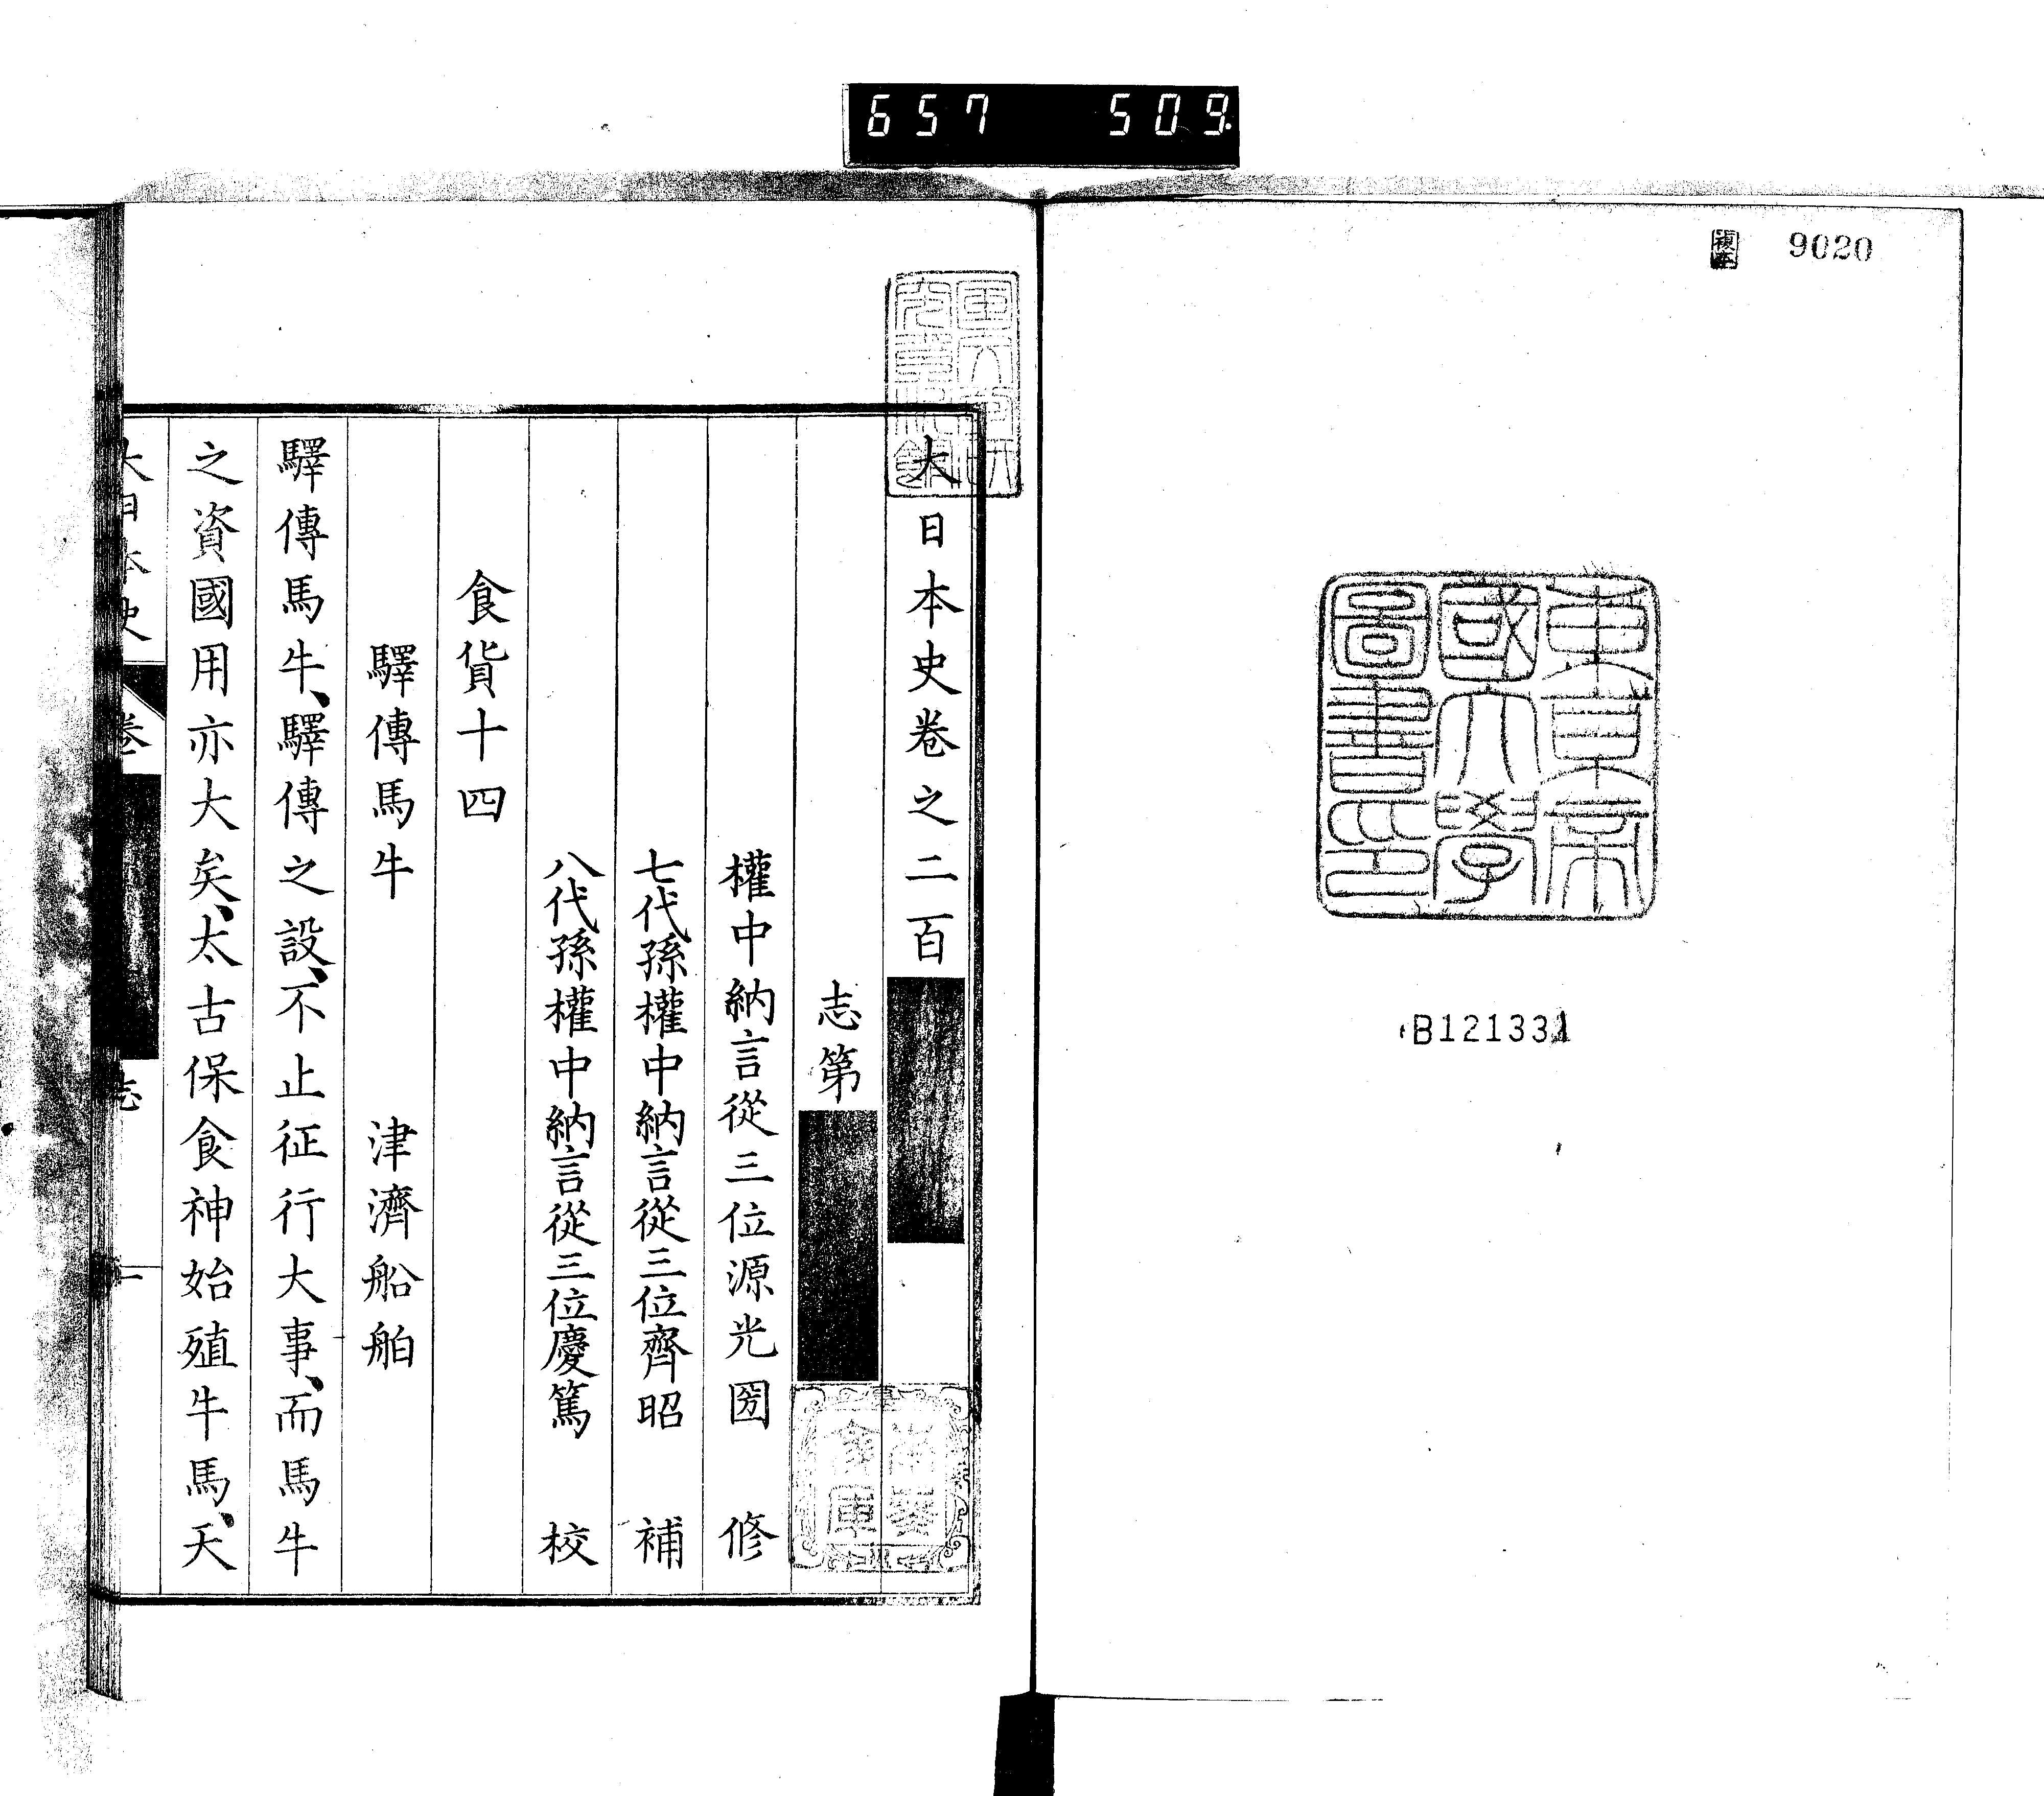 657 509
複本
9020
東京帝
國大學
圖書印
B121331
大日本史卷之二百
志第
權中納言從三位源光圀 修
七代孫權中納言從三位齊昭 補
八代孫權中納言從三位慶篤 校
食貨十四
驛傳馬牛 津濟船舶
驛傳馬牛、驛傳之設、不止征行大事、而馬牛
之資國用亦大矣、太古保食神始殖牛馬、天
大日本史 卷 志 一
南葵
文庫